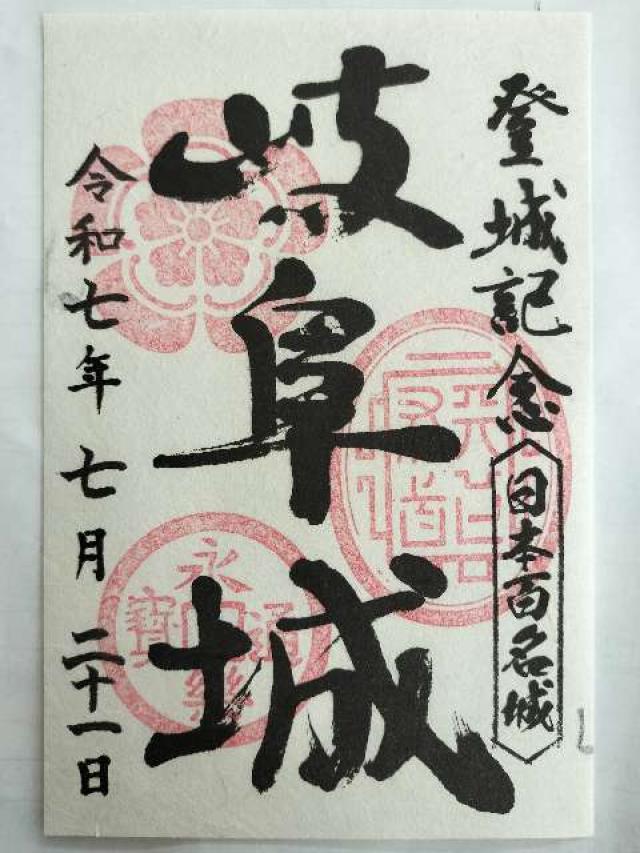 登城記念
日本百名城
岐阜城
令和七年七月二十一日
永樂通寳